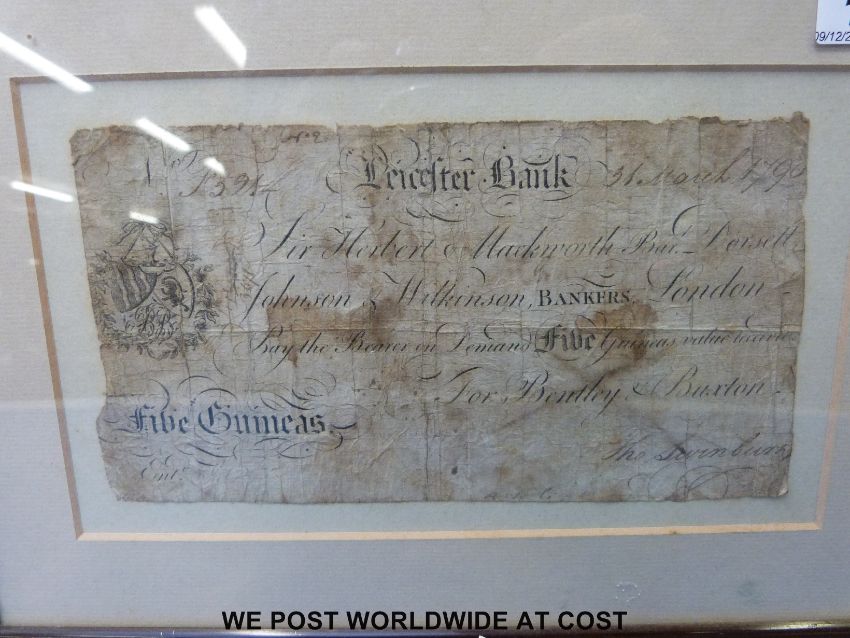 09/12/2
No 13984 Leicester Bank 31 March 1790
Sir Herbert Mackworth Bart. Dorsett
Johnson & Wilkinson, BANKERS, London
Pay the Bearer on Demand Five Guineas value receiv
For Bentley & Buxton
Five Guineas
Entd.
Tho Swinburn
WE POST WORLDWIDE AT COST